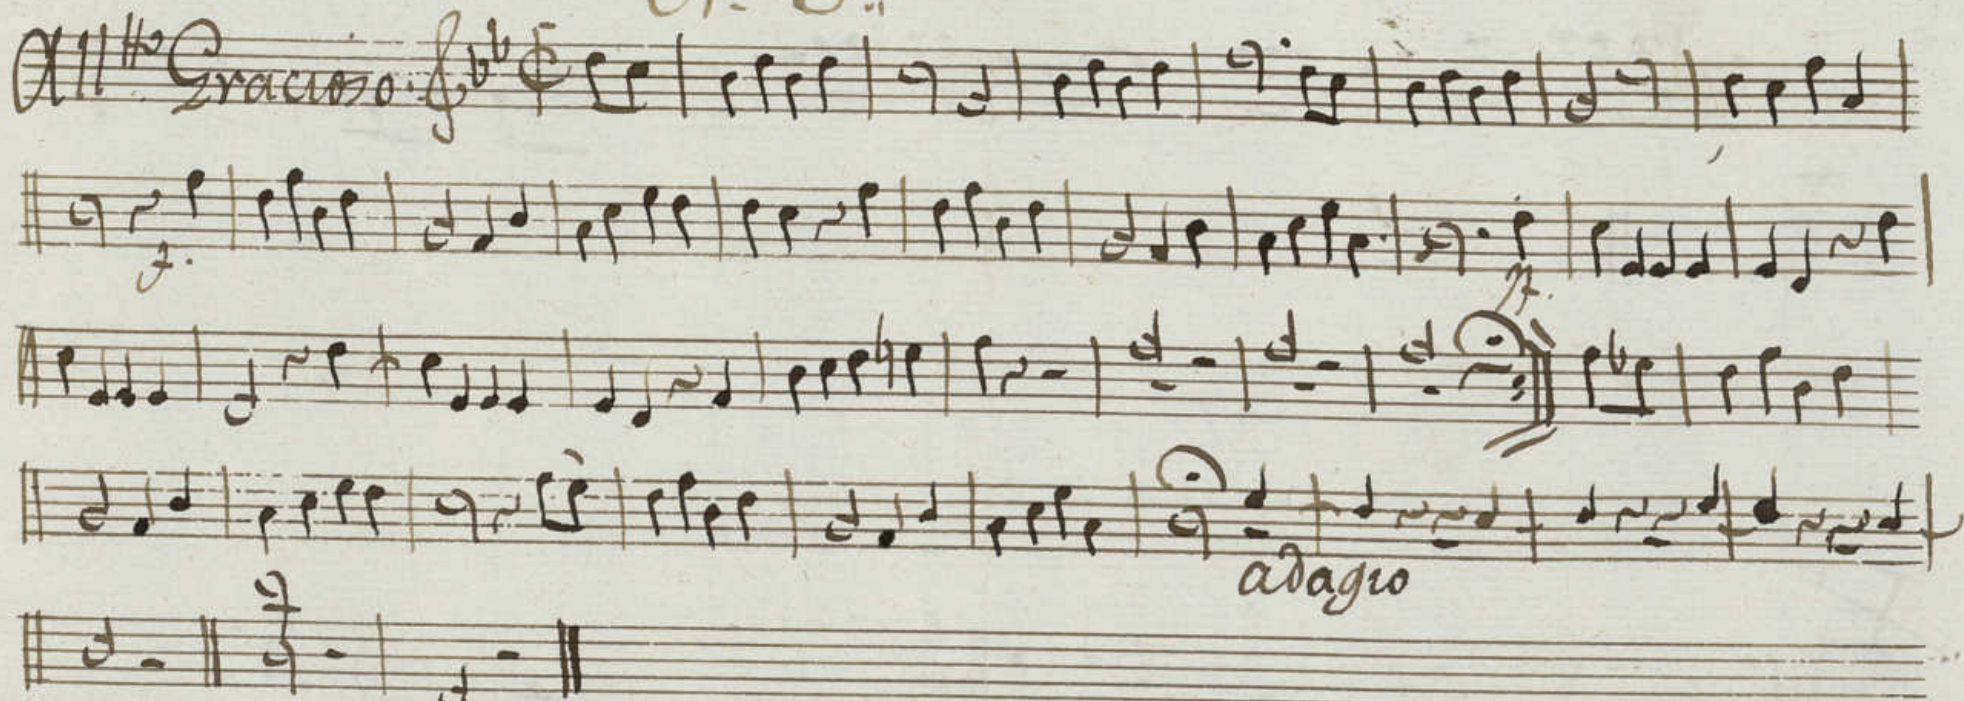 All.º Gracioso.
f.
p.
adagio